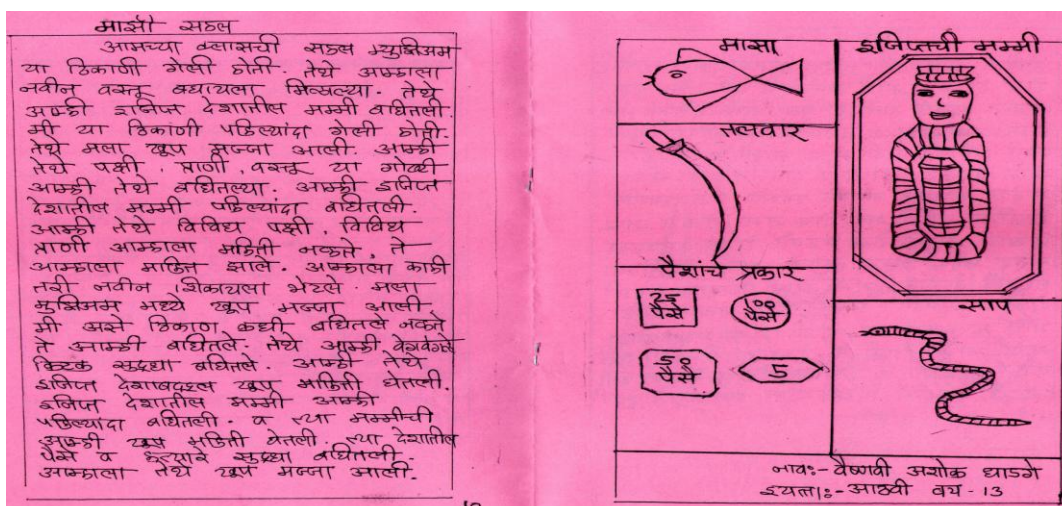 माझी सहल
आमच्या क्लासची सहल म्युझिअम
या ठिकाणी गेली होती. तेथे आम्हाला
नवीन वस्तू बघायला मिळाल्या. तेथे
आम्ही इजिप्त देशातील मम्मी बघितली.
मी या ठिकांणी पहिल्यांदा गेली होती.
तेथे मला खूप मज्जा आली. आम्ही
तेथे पक्षी, प्राणी, वस्तू या गोष्टी
आम्ही तेथे बघितल्या. आम्ही इजिप्त
देशातील मम्मी पहिल्यांदा बघितली.
आम्ही तेथे विविध पक्षी, विविध
प्राणी आम्हाला महिती नव्हते, ते
आम्हाला माहित झाले. आम्हाला काही
तरी नवीन शिकायला भेटले. मला
मुझिअम मध्ये खूप मज्जा आली.
मी असे ठिकाण कधी बघितले नव्हते
ते आम्ही बघितले. तेथे आम्ही वेगवेगळे
किटक सुद्धा बघितले. आम्ही तेथे
इजिप्त देशाबद्दल खूप महिती घेतली.
इजिप्त देशातील मम्मी आम्ही
पहिल्यादा बघितली. व त्या मम्मीची
आम्ही खूप महिती घेतली. त्या देशातील
पैसे व हत्यारे सुद्धा बघितली.
आम्हाला तेथे खूप मज्जा आली.
मासा
इजिप्तची मम्मी
तलवार
पैशांचे प्रकार
25
पैसे
100
पैसे
50
पैसे
5
साप
नाव:- वैष्णवी अशोक घाडगे
इयत्ता:- आठवी वय - 13